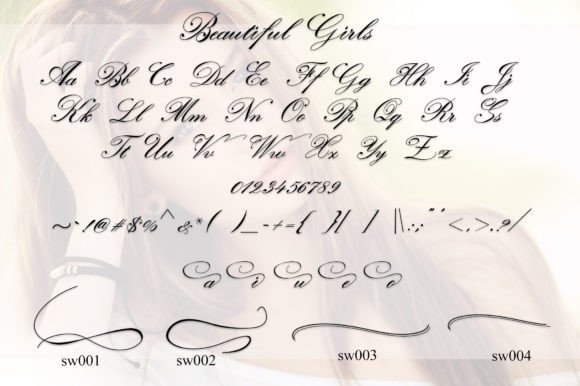 Beautiful Girls
Aa Bb Cc Dd Ee Ff Gg Hh Ii Jj
Kk Ll Mm Nn Oo Pp Qq Rr Ss
Tt Uu Vv Ww Xx Yy Zz
0123456789
~`!@#$%^&*( )_-+={ }[ ] |\:;"'<,>.?/
a i u e o
sw001 sw002 sw003 sw004